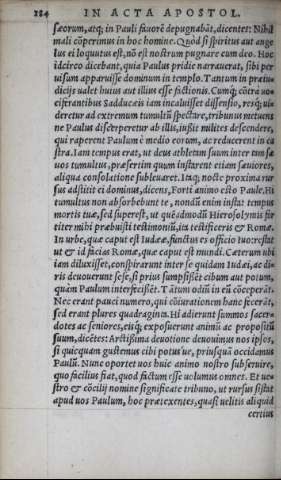 184 IN ACTA APOSTOL.
sæorum, atq; in Pauli fauorē depugnabāt, dicentes: Nihil
mali cōperimus in hoc homine. Quòd si spiritus aut ange
lus ei loquutus est, nō est nostrum pugnare cum deo. Hoc
idcirco dicebant, quia Paulus pridie narrauerat, sibi per
uisum apparuisse dominum in templo. Tantum in præiu-
dicijs ualet huius aut illius esse factionis. Cumq́; cōtra uo-
ciferantibus Sadducæis iam incaluisset dissensio, resq́; ui-
deretur ad extremum tumultū spectare, tribunus metuens
ne Paulus discerperetur ab illis, iussit milites descendere,
qui raperent Paulum è medio eorum, ac reducerent in ca
stra. Iam tempus erat, ut deus athletam suum inter tam sæ
uos tumultus, præsertim quum instarent etiam sæuiores,
aliqua consolatione subleuaret. Itaq; nocte proxima rur-
sus adstitit ei dominus, dicens, Forti animo esto Paule. Hi
tumultus non absorbebunt te, nondū enim instat tempus
mortis tuæ, sed superest, ut quēadmodū Hierosolymis for
titer mihi præbuisti testimoniū, ita testificeris & Romæ.
In urbe, quæ caput est Iudææ, functus es officio tuo: restat
ut & id facias Romæ, quæ caput est mundi. Cæterum ubi
iam diluxisset, conspirarunt inter se quidam Iudæi, ac di-
ris deuouerunt sese, si prius sumpsissēt cibum aut potum,
quàm Paulum interfecissēt. Tātum odiū in eū cōceperāt.
Nec erant pauci numero, qui cōiurationem hanc fecerāt,
sed erant plures quadraginta. Hi adierunt summos sacer-
dotes ac seniores, eisq́; exposuerunt animū ac propositū
suum, dicētes: Arctissima deuotione deuouimus nos ipsos,
si quicquam gustemus cibi potus'ue, priusquā occidamus
Paulū. Nunc oportet uos huic animo nostro subseruire,
quo facilius fiat, quod factum esse uolumus omnes. Et ue-
stro & cōcilij nomine significate tribuno, ut rursus sistat
apud uos Paulum, hoc prætexentes, quasi uelitis aliquid
certius